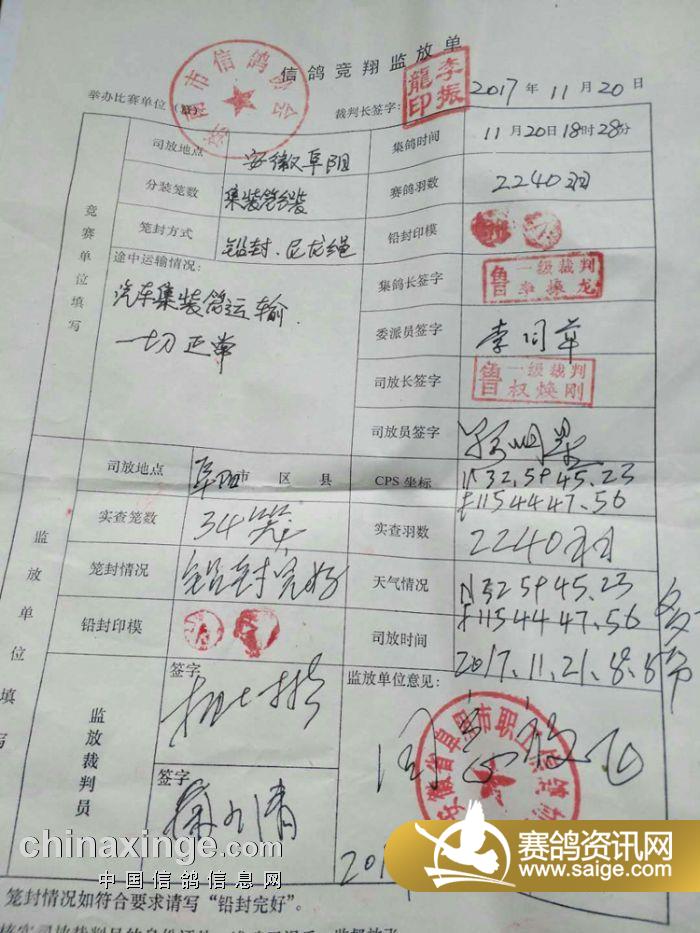 信鸽竞翔监放单
举办比赛单位（章） 裁判长签字： 2017年11月20日
市信鸽协会
李振龍印
竞赛单位填写
司放地点 安徽阜阳 集鸽时间 11月20日18时28分
分装笼数 集装箱分装 赛鸽羽数 2240羽
笼封方式 铅封.尼龙绳 铅封印模
途中运输情况： 集鸽长签字 鲁 一级裁判
汽车集装箱运输.
一切正常
委派员签字
司放长签字 鲁 一级裁判 权焕刚
司放员签字
监放单位填写
司放地点 阜阳市 区 县 CPS 坐标 N32.5945.23
E1154447.56
实查笼数 34笼 实查羽数 2240羽
笼封情况 铅封完好 天气情况 N325945.23
E1154447.56
多云
铅封印模 司放时间 2017.11.21.8.8
监放裁判员
签字 监放单位意见：
同意放飞
安徽省阜阳市职工
签字
201
chinaxinge.com
中国信鸽信息网
赛鸽资讯网
www.saige.com
笼封情况如符合要求请写“铅封完好”。